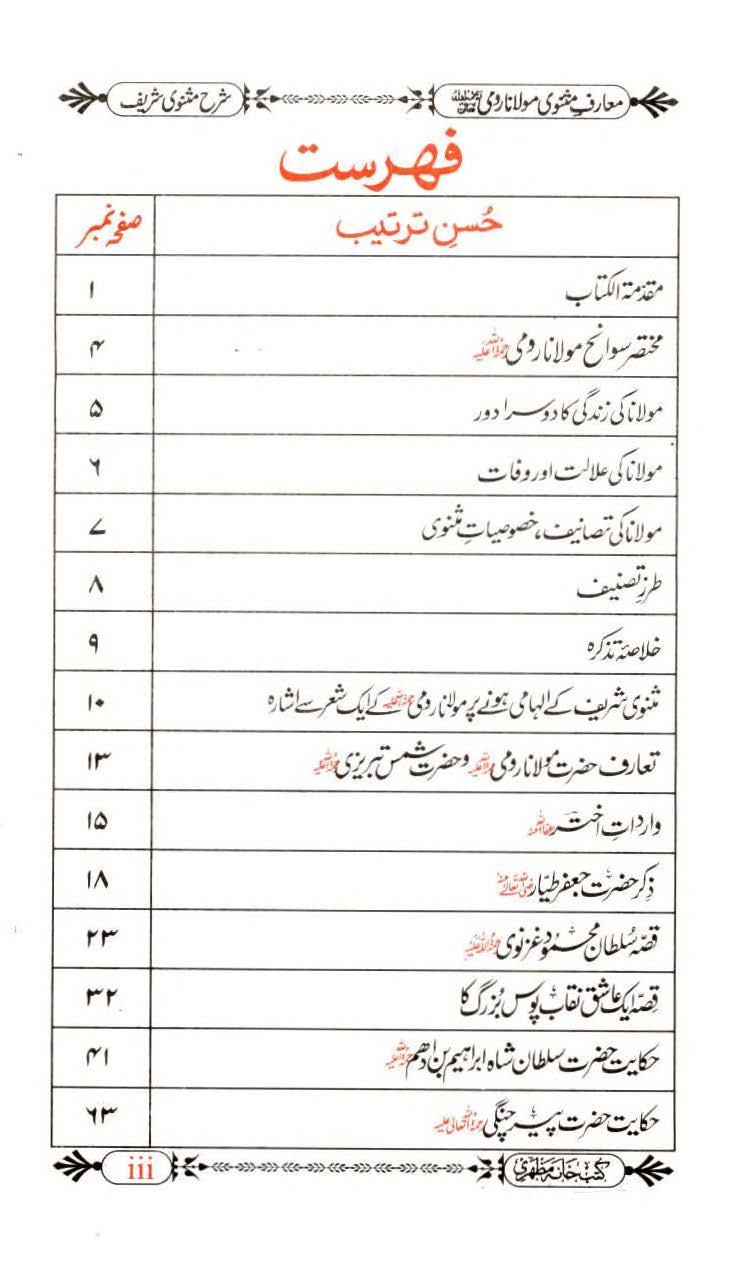 معارفِ مثنوی مولانا رومی رحمۃ اللہ علیہ شرح مثنوی شریف
فہرست
حُسنِ ترتیب صفحہ نمبر
مقدمۃ الکتاب ۱
مختصر سوانح مولانا رومی رحمۃ اللہ علیہ ۴
مولانا کی زندگی کا دوسرا دور ۵
مولانا کی علالت اور وفات ۶
مولانا کی تصانیف، خصوصیاتِ مثنوی ۷
طرزِ تصنیف ۸
خلاصۂ تذکرہ ۹
مثنوی شریف کے الہامی ہونے پر مولانا رومی رحمۃ اللہ علیہ کے ایک شعر سے اشارہ ۱۰
تعارف حضرت مولانا رومی رحمۃ اللہ علیہ و حضرت شمس تبریزی رحمۃ اللہ علیہ ۱۳
وارداتِ اختر عفا اللہ عنہ ۱۵
ذکر حضرت جعفر طیّار رضی اللہ تعالیٰ عنہ ۱۸
قصّہ سُلطان محمود غزنوی رحمۃ اللہ علیہ ۲۳
قصّہ ایک عاشق نقاب پوس بُزرگ کا ۳۲
حکایت حضرت سلطان شاہ ابراہیم بن ادھم رحمۃ اللہ علیہ ۴۱
حکایت حضرت پیر چنگی رحمۃ اللہ تعالیٰ علیہ ۶۳
کتب خانہ مظہری iii